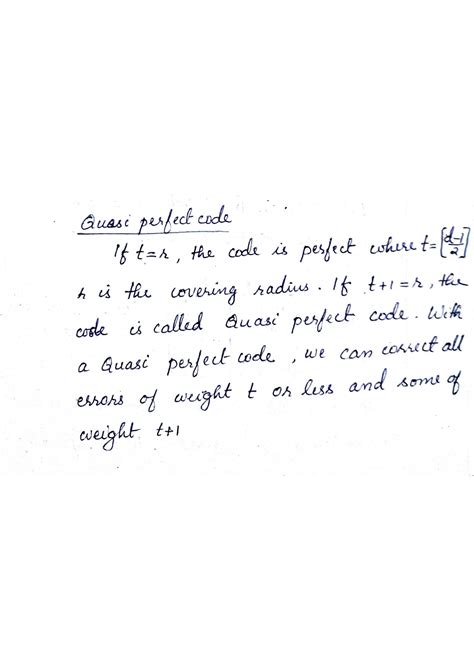 Quasi perfect code
If t=r, the code is perfect where t=[d-1/2]
r is the covering radius. If t+1=r, the
code is called Quasi perfect code. With
a Quasi perfect code, we can correct all
errors of weight t or less and some of
weight t+1